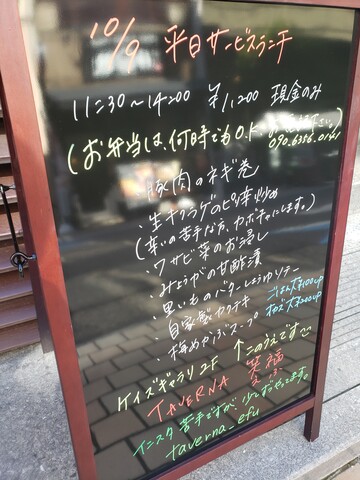 10/9 平日サービスランチ
11:30~14:00 ¥1,200 現金のみ
(お弁当は、何時でもO.K.
090.6356.0141
豚肉のネギ巻
・生キクラゲのピリ辛炒め
(辛いの苦手な方、カボチャにします。)
・ワサビ菜のお浸し
・みょうがの甘酢漬
・里いものバターしょうゆソテー
・自家製カクテキ
ごはん大¥100up
・梅めかぶスープ
オカズ大¥200up
ケイズギャラリー2F ↑このうえです
TAVERNA 笑福
えふ
インスタ苦手ですが、少しずつやってます。
taverna_efu